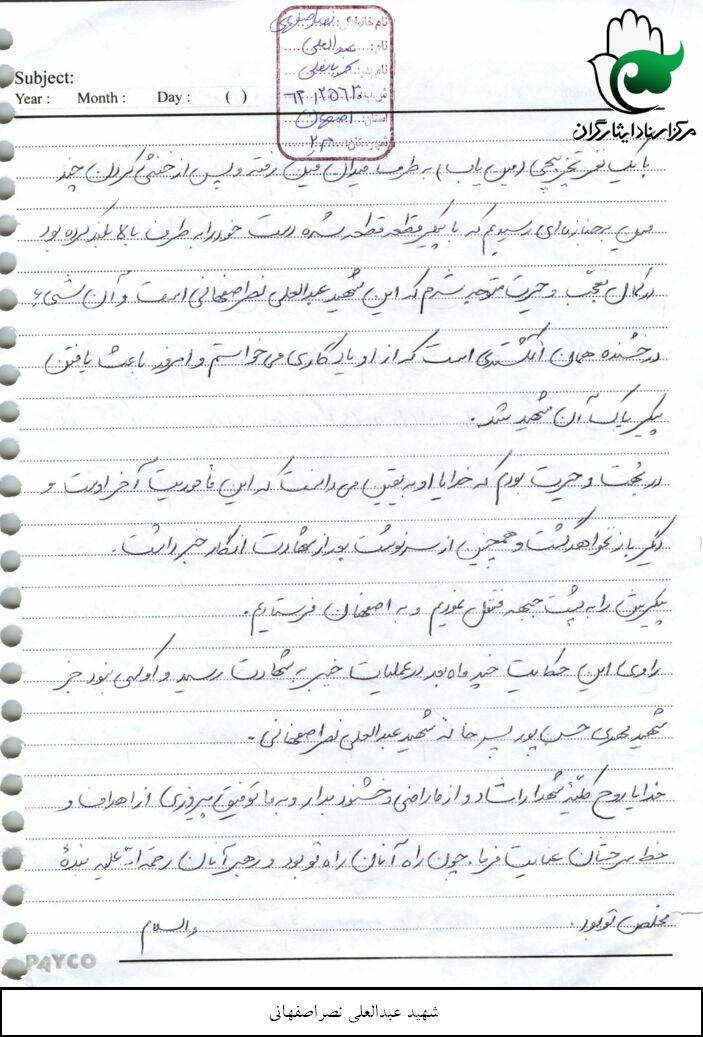 نام خانوادگی: نصراصفهانی
نام: عبدالعلی
نام پدر:
استان: اصفهان
شهرستان:
مرکز اسناد ایثارگران
Subject:
Year : Month : Day : ( )
با یک نفر تخریبچی (مین یاب) به طرف میدان مین رفته و پس از خنثی کردن چند
مین به جنازه‌ای رسیدیم که با پیکر قطعه قطعه شده دست خود را به طرف بالا بلند کرده بود
در کمال تعجب و حیرت متوجه شدم که این شهید عبدالعلی نصراصفهانی است و آن شیء
درخشنده همان انگشتری است که از او یادگاری می‌خواستم و امروز باعث یافتن
پیکر پاک آن شهید شد.
در بهت و حیرت بودم که خدایا او به یقین می‌دانست که این مأموریت آخر اوست و
دیگر باز نخواهد گشت و همچنین از سرنوشت بعد از شهادت انگار خبر داشت.
پیکرش را به پشت جبهه منتقل نمودیم و به اصفهان فرستادیم.
راوی این حکایت چند ماه بعد در عملیات خیبر به شهادت رسید و او کسی نبود جز
شهید مهدی حسن پور پسر خاله شهید عبدالعلی نصراصفهانی.
خدایا روح کلیهٔ شهدا را شاد و از ما راضی و خشنود بدار و به ما توفیق پیروزی از اهداف و
خط سرخشان عنایت فرما. چون راه آنان راه تو بود و رهبر آنان رحمة الله علیه بندهٔ
مخلص تو بود. والسلام
PAYCO
شهید عبدالعلی نصراصفهانی